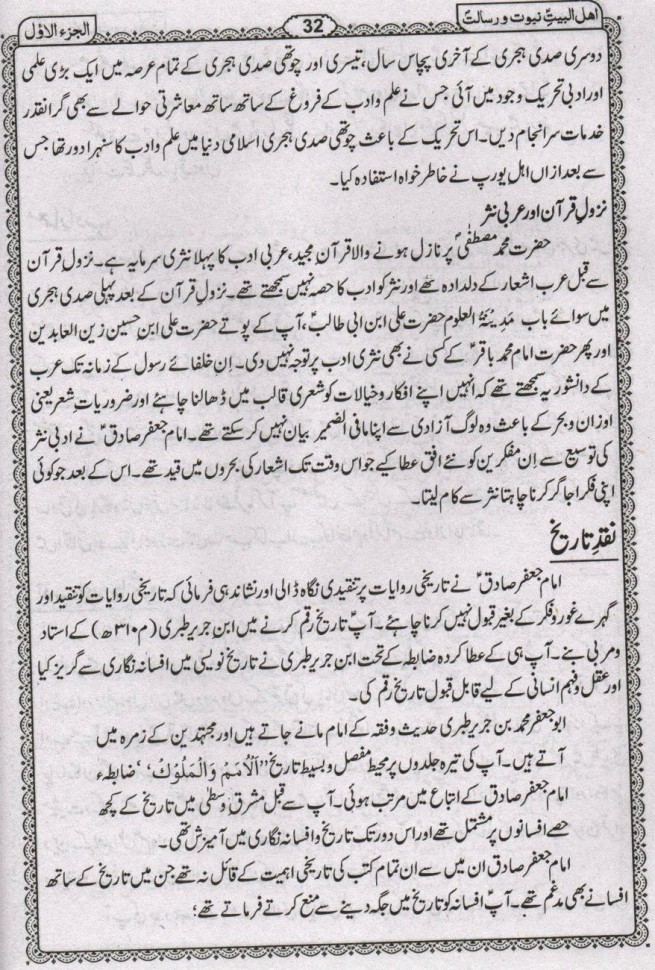 اھل البیتِؑ نبوت و رسالتؐ
32
الجزء الاوّل
دوسری صدی ہجری کے آخری پچاس سال، تیسری اور چوتھی صدی ہجری کے تمام عرصہ میں ایک بڑی علمی
اور ادبی تحریک وجود میں آئی جس نے علم وادب کے فروغ کے ساتھ ساتھ معاشرتی حوالے سے بھی گرانقدر
خدمات سرانجام دیں۔ اس تحریک کے باعث چوتھی صدی ہجری اسلامی دنیا میں علم وادب کا سنہرا دور تھا جس
سے بعد ازاں اہل یورپ نے خاطر خواہ استفادہ کیا۔
نزولِ قرآن اور عربی نثر
حضرت محمد مصطفٰیؐ پر نازل ہونے والا قرآن مجید، عربی ادب کا پہلا نثری سرمایہ ہے۔ نزولِ قرآن
سے قبل عرب اشعار کے دلدادہ تھے اور نثر کو ادب کا حصہ نہیں سمجھتے تھے۔ نزولِ قرآن کے بعد پہلی صدی ہجری
میں سوائے باب مَدِیْنَۃُ العلوم حضرت علی ابن ابی طالبؑ، آپ کے پوتے حضرت علی ابن حسین زین العابدین
اور پھر حضرت امام محمد باقرؑ کے کسی نے بھی نثری ادب پر توجہ نہیں دی۔ اِن خلفائے رسول کے زمانہ تک عرب
کے دانشور یہ سمجھتے تھے کہ انہیں اپنے افکار و خیالات کو شعری قالب میں ڈھالنا چاہئے اور ضروریاتِ شعر یعنی
اوزان و بحر کے باعث وہ لوگ آزادی سے اپنا مافی الضمیر بیان نہیں کر سکتے تھے۔ امام جعفر صادقؑ نے ادبی نثر
کی توسیع سے اِن مفکرین کو نئے افق عطا کیے جو اس وقت تک اشعار کی بحروں میں قید تھے۔ اس کے بعد جو کوئی
اپنی فکر اجاگر کرنا چاہتا نثر سے کام لیتا۔
نقدِ تاریخ
امام جعفر صادقؑ نے تاریخی روایات پر تنقیدی نگاہ ڈالی اور نشاندہی فرمائی کہ تاریخی روایات کو تنقید اور
گہرے غور و فکر کے بغیر قبول نہیں کرنا چاہئے۔ آپؑ تاریخ رقم کرنے میں ابن جریر طبری (م۳۱۰ھ) کے استاد
و مربی بنے۔ آپ ہی کے عطا کردہ ضابطہ کے تحت ابن جریر طبری نے تاریخ نویسی میں افسانہ نگاری سے گریز کیا
اور عقل و فہم انسانی کے لیے قابل قبول تاریخ رقم کی۔
ابو جعفر محمد بن جریر طبری حدیث و فقہ کے امام مانے جاتے ہیں اور مجتہدین کے زمرہ میں
آتے ہیں۔ آپ کی تیرہ جلدوں پر محیط مفصل و بسیط تاریخ ’’اَلْاُمَمْ وَالْمَلُوکْ‘‘ ضابطہء
امام جعفر صادق کے اتباع میں مرتب ہوئی۔ آپ سے قبل مشرق وسطٰی میں تاریخ کے کچھ
حصے افسانوں پر مشتمل تھے اور اس دور تک تاریخ و افسانہ نگاری میں آمیزش تھی۔
امام جعفر صادق ان میں سے ان تمام کتب کی تاریخی اہمیت کے قائل نہ تھے جن میں تاریخ کے ساتھ
افسانے بھی مدغم تھے۔ آپؑ افسانہ کو تاریخ میں جگہ دینے سے منع کرتے فرماتے تھے؛